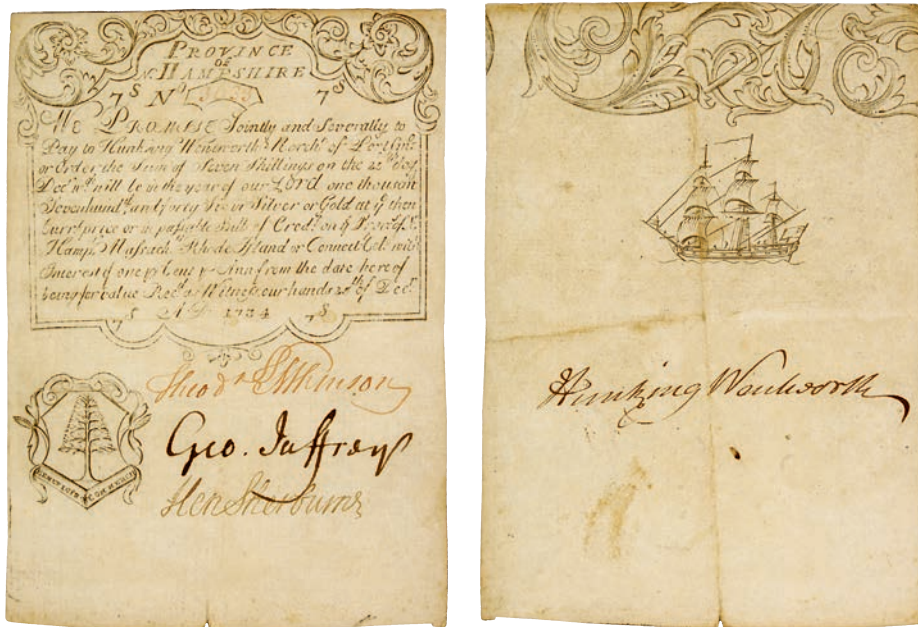 PROVINCE
OF
N. HAMPSHIRE
7S No 7S
WE PROMISE Jointly and Severally to
Pay to Hunking Wentworth Merch.t of
or Order the Sum of Seven Shillings on the day
Dec. w.ch will be in the year of our LORD one thousand
Sevenhund.d and forty Silver or Gold at y.e then
Curr.t price or in passable Bills of Cred.t on y.e
Hamp.r Massach. Rhode Island or Connecti
Interest of one p Cent p Ann. from the date here of
being for value Rec.d as Witness our hands of Dec.r
7S A D 1734 7S
Theod.r Atkinson
Geo. Jaffrey
Hen Sherburne
Hunking Wentworth